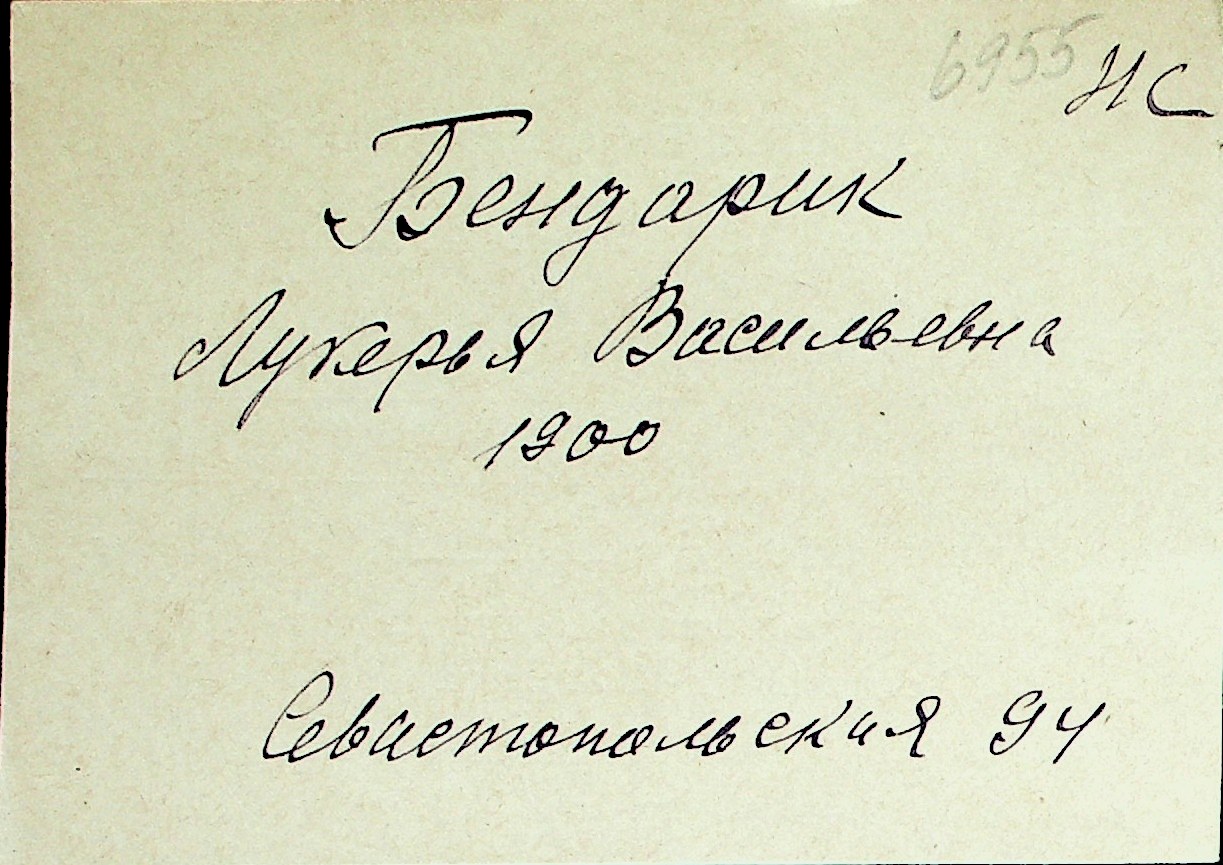 6955 НС
Бендарик
Лукерья Васильевна
1900
Севастопольская 94